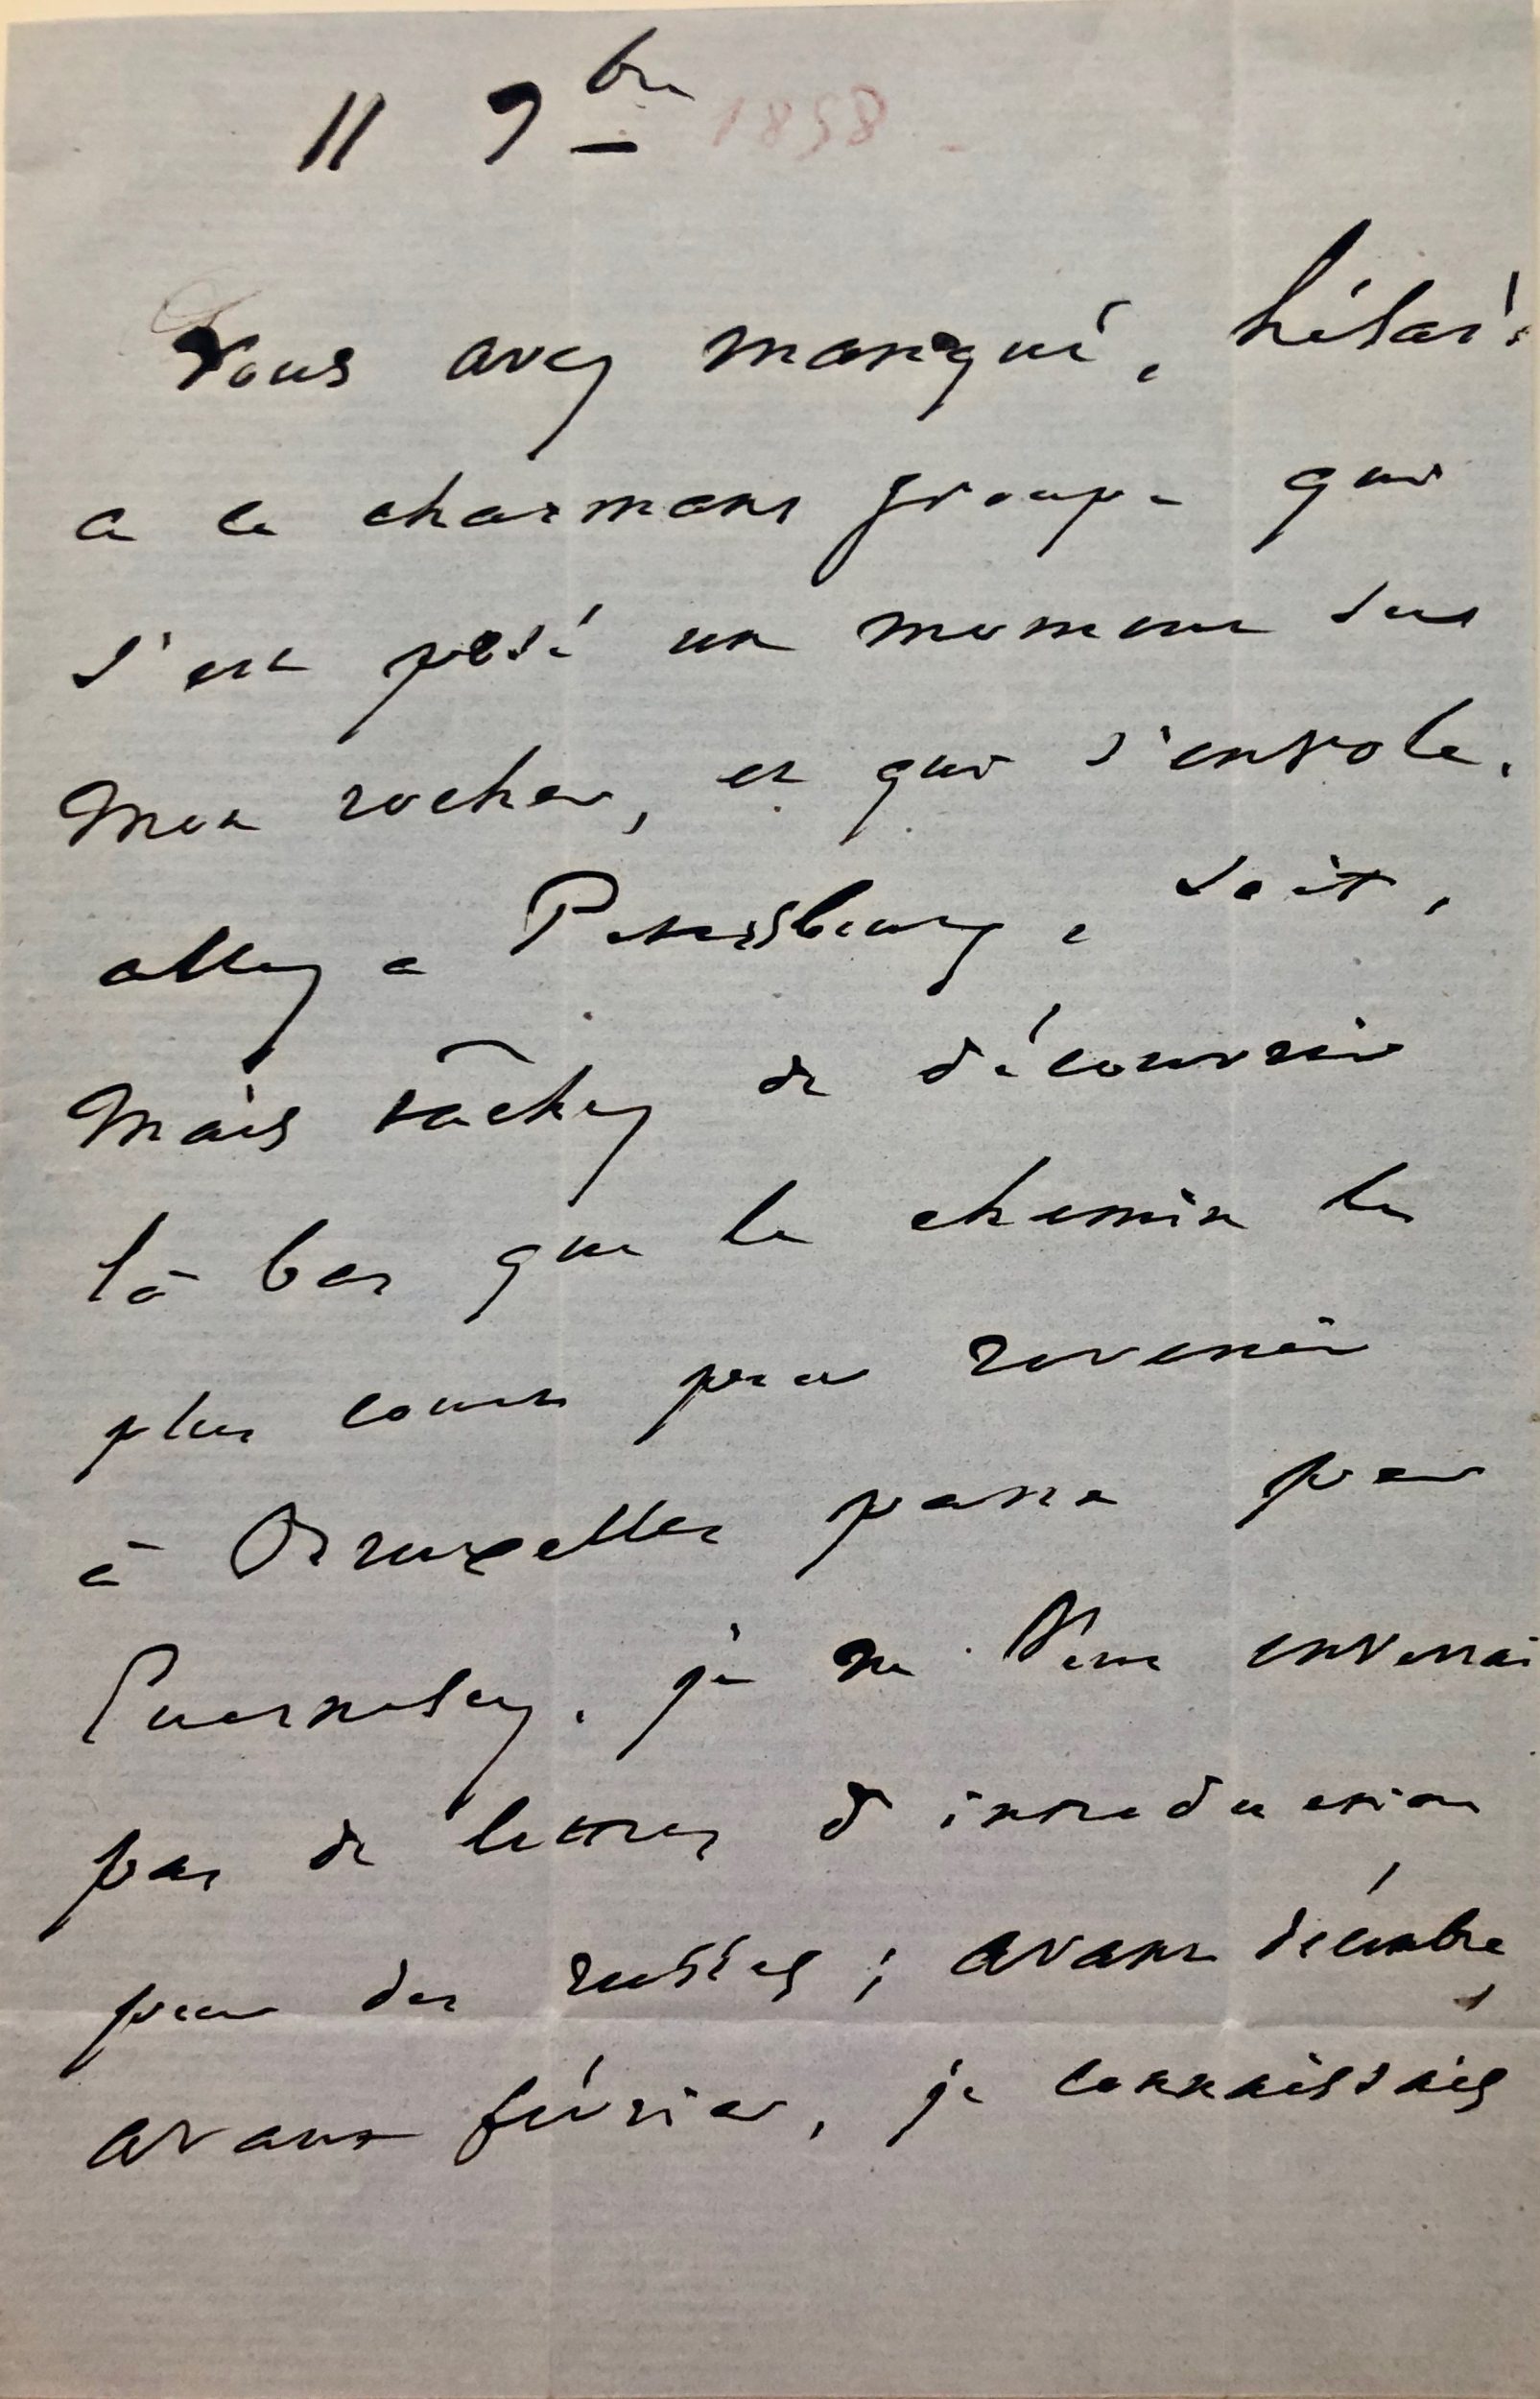 11 9bre 1858
Vous avez manqué, hélas !
à ce charmant groupe qui
s'est posé un moment sur
mon rocher, et qui s'envole.
allez à Petersbourg, soit,
mais tâchez de découvrir
là bas que le chemin le
plus court pour revenir
à Bruxelles passe par
Guernesey. je ne vous enverrai
pas de lettres d'introduction
pour des russes ; avant décembre,
avant février, je connaissais